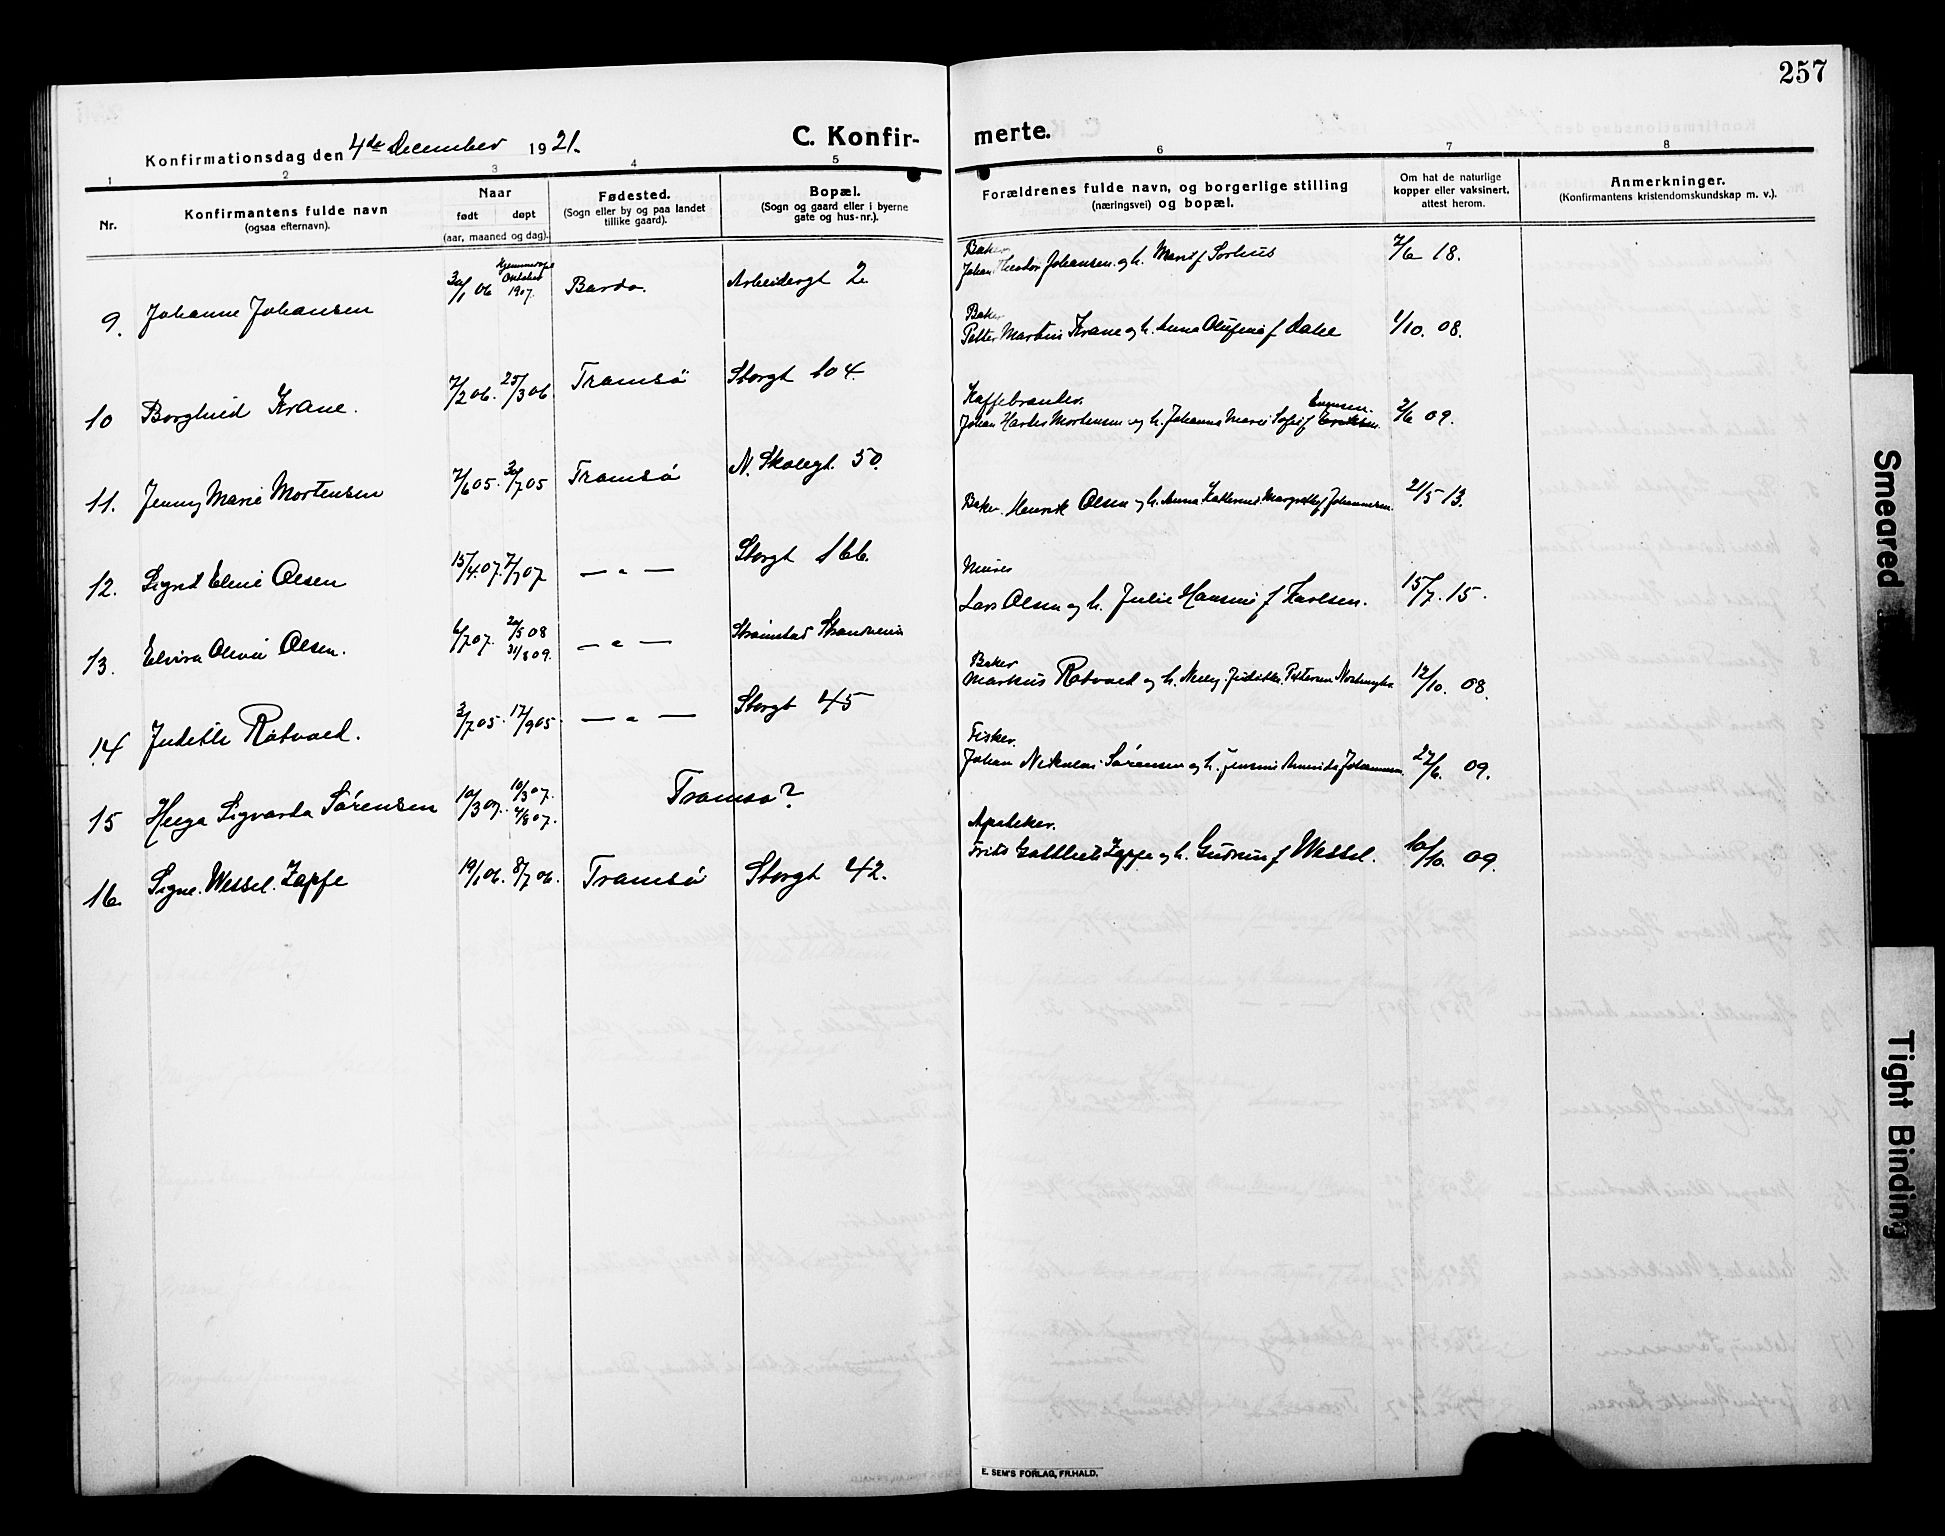 257
Konfirmationsdag den 4de December 1921.
C. Konfirmerte.
1 2 3 4 5 6 7 8
Nr.
Konfirmantens fulde navn
(ogsaa efternavn).
Naar
født døpt
(aar, maaned og dag).
Fødested.
(Sogn eller by og paa landet
tillike gaard).
Bopæl.
(Sogn og gaard eller i byerne
gate og hus-nr.).
Forældrenes fulde navn, og borgerlige stilling
(næringsvei) og bopæl.
Om hat de naturlige
kopper eller vaksinert,
attest herom.
Anmerkninger.
(Konfirmantens kristendomskundskap m. v.).
Baker
9. Johanne Johansen 30/1 06 Hjemmedøpt Oktober 1907. Bardo. Arbeidergt 2. Johan Theodor Johansen og h. Marie f Sørhus 7/6 18.
Baker
10 Borghild Krane. 7/2 06. 25/3 06 Tromsö Storgt 104. Petter Martin Krane og h. Anna Olufine f Dahl 1/10. 08.
Kaffebrænder.
11. Jenny Marie Mortensen 7/6 05. 30/7 05 Tromsø N. Skolegt. 50. Johan Mortensen og h. Johanna Marie Sofie f 2/6 09.
12. Sigrid Eline Olsen 15/4. 07. 7/7 07 — " — Storgt 166. Baker. Henrik Olsen og h. Anna Katherine Margrethe f Johannesen. 21/5 13.
Murer
13. Elvira Olivie Olsen. 6/7 07. 20/5 08 31/8 09. — " — Strømstad Strandveien Lars Olsen og h. Julie Hansine f Karlsen. 15/7. 15.
Baker
14 Judithe Rotvold. 3/7 05. 17/9 05. — " — Storgt 45 Markus Rotvold og h. Nelly Judithe Pettersen 12/10. 08.
Fisker.
15 Helga Sigvarda Sørensen 10/3 07. 10/3 07. 4/8 07. Tromsø? Johan Nikolai Sørensen og h. Jensine Amanda Johannesen 27/6. 09.
Apoteker.
16. Signe. Wessel. Zapfe 19/1 06. 8/7 06. Tromsø Storgt 42. Fritz Gottlieb Zapfe og h. Gudrun f Wessel. 10/10. 09.
E. SEM'S FORLAG, FR.HALD.
Smeared
Tight Binding